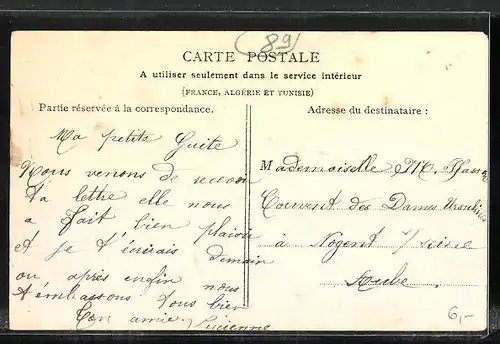 89
CARTE POSTALE
A utiliser seulement dans le service intérieur
(FRANCE, ALGÉRIE ET TUNISIE)
Partie réservée à la correspondance.
Ma petite Guite
Nous venons de recevoir
ta lettre elle nous
a fait bien plaisir
et je t'écrirais demain
ou après enfin nous
t'embrassons tous bien
Ton amie. Lucienne
Adresse du destinataire :
Mademoiselle M.
Couvent des Dames Ursulines
à Nogent s/Seine
Aube
6,-